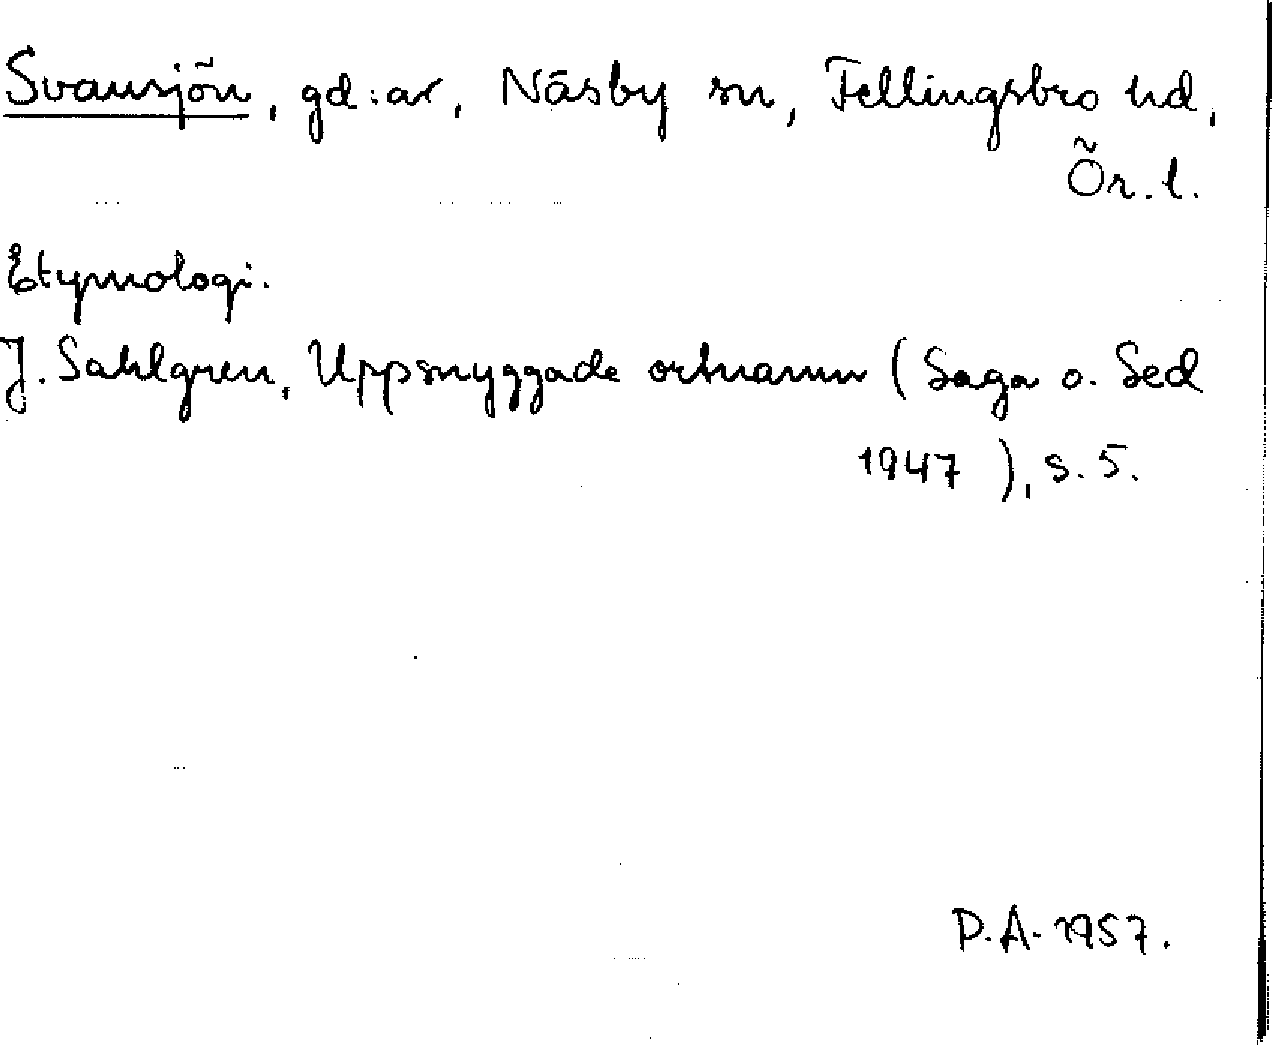 Svansjön, gd:ar, Näsby sn, Fellingsbro hd,
Ör. l.
Etymologi.
J. Sahlgren, Uppsnyggade ortnamn (Saga o. Sed
1947), s. 5.
P.A. 1957.